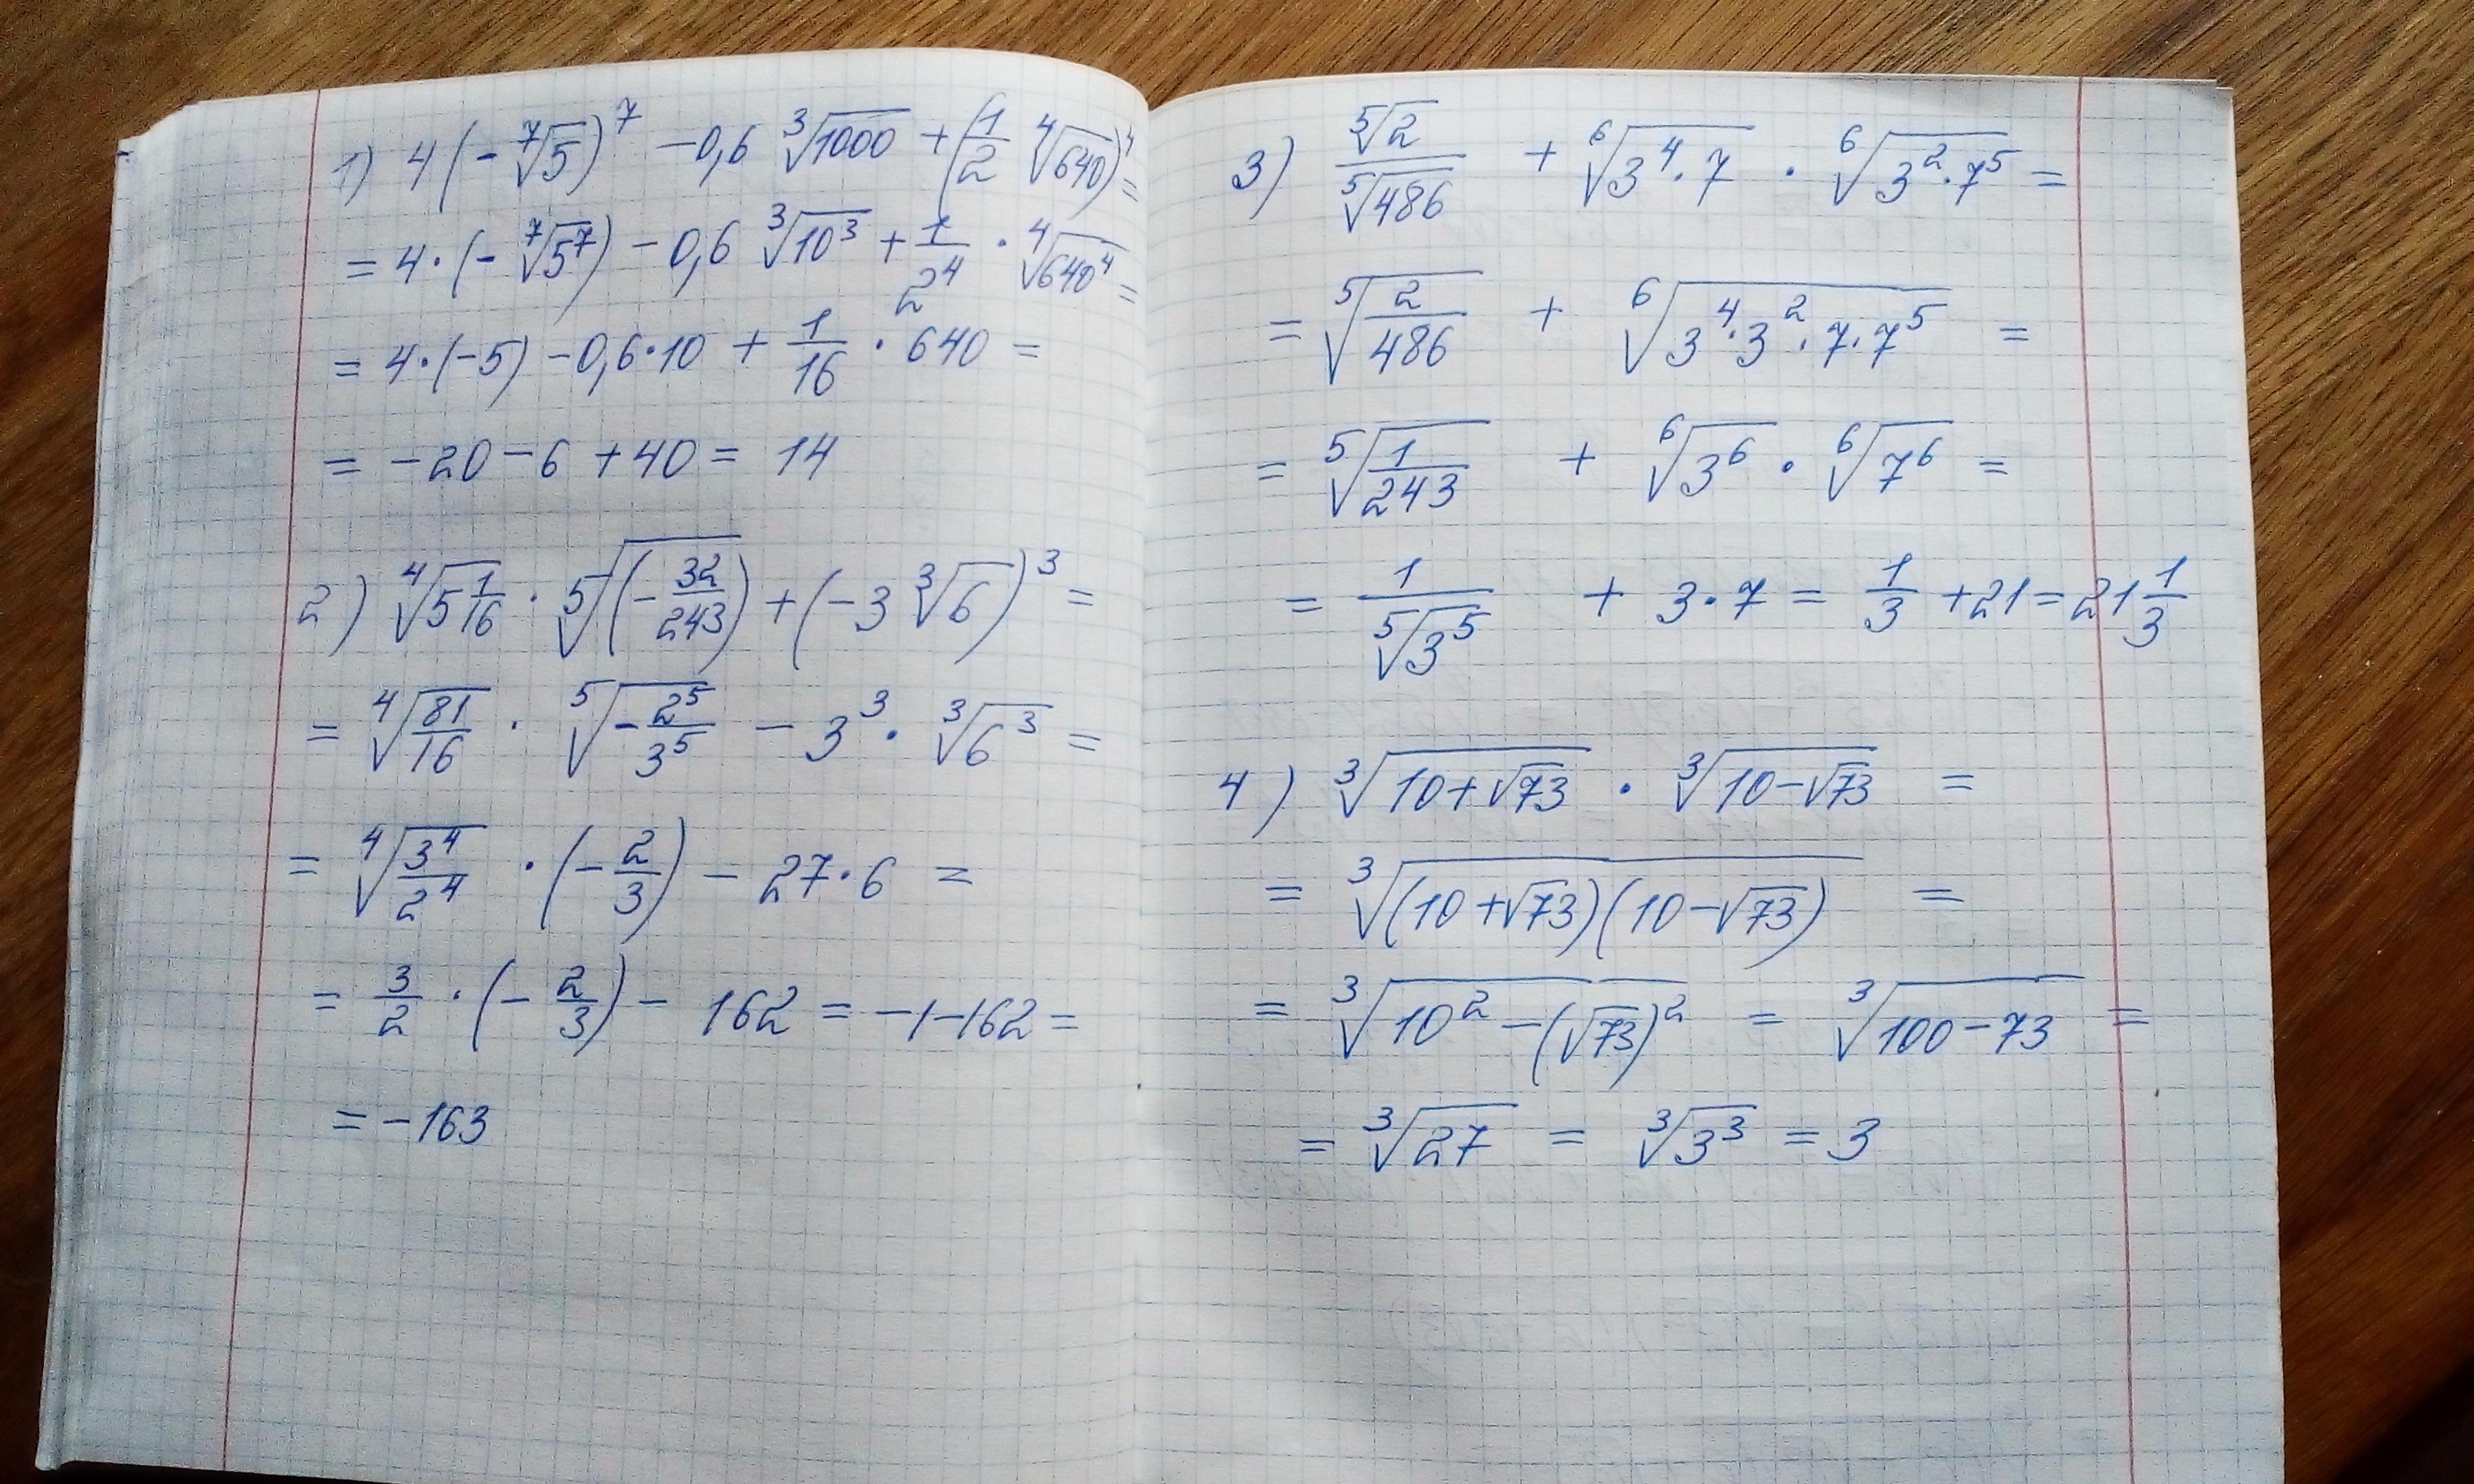 1) 4(-⁷√5)⁷ - 0,6 ³√1000 + (1/2 ⁴√640)⁴ =
= 4·(-⁷√5⁷) - 0,6 ³√10³ + 1/2⁴ · ⁴√640⁴ =
= 4·(-5) - 0,6·10 + 1/16 · 640 =
= -20 - 6 + 40 = 14
2) ⁴√(5 1/16) · ⁵√(-32/243) + (-3 ³√6)³ =
= ⁴√(81/16) · ⁵√(-2⁵/3⁵) - 3³ · ³√6³ =
= ⁴√(3⁴/2⁴) · (-2/3) - 27·6 =
= 3/2 · (-2/3) - 162 = -1-162 =
= -163
3) ⁵√2/⁵√486 + ⁶√(3⁴·7) · ⁶√(3²·7⁵) =
= ⁵√(2/486) + ⁶√(3⁴·3²·7·7⁵) =
= ⁵√(1/243) + ⁶√3⁶ · ⁶√7⁶ =
= 1/⁵√3⁵ + 3·7 = 1/3 + 21 = 21 1/3
4) ³√(10+√73) · ³√(10-√73) =
= ³√((10+√73)(10-√73)) =
= ³√(10²-(√73)²) = ³√(100-73) =
= ³√27 = ³√3³ = 3